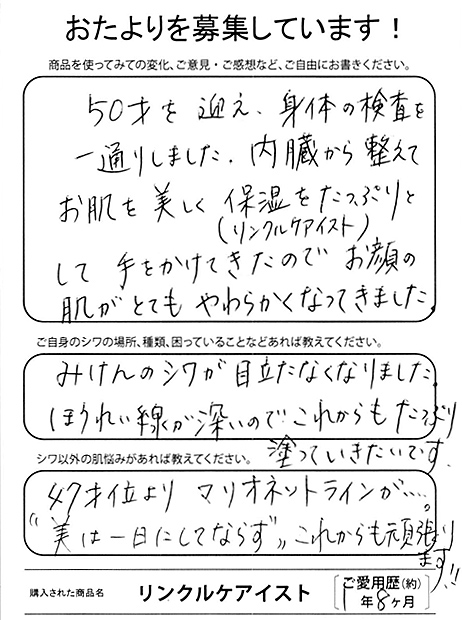 おたよりを募集しています！
商品を使ってみての変化、ご意見・ご感想など、ご自由にお書きください。
50才を迎え、身体の検査を
一通りしました。内臓から整えて
お肌を美しく保湿をたっぷりと
(リンクルケアイスト)
して手をかけてきたので お顔の
肌がとてもやわらかくなってきました。
ご自身のシワの場所、種類、困っていることなどあれば教えてください。
みけんのシワが目立たなくなりました。
ほうれい線が深いので これからもたっぷり
塗っていきたいです。
シワ以外の肌悩みがあれば教えてください。
47才位より マリオネットラインが……。
“美は一日にしてならず”これからも頑張り
ます!!
購入された商品名 リンクルケアイスト
ご愛用歴(約)
1年8ヶ月